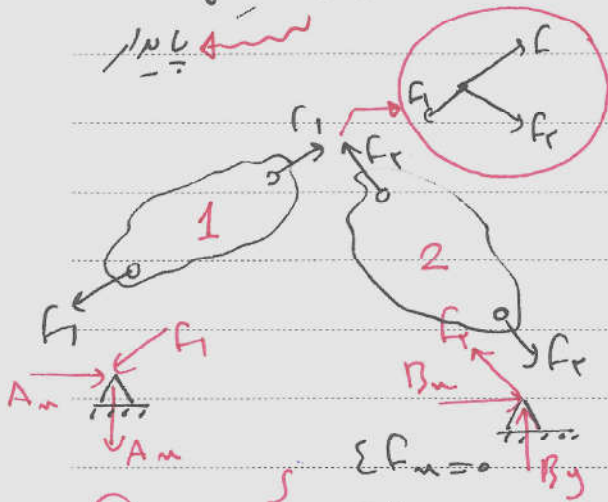 پایدار
F
F₁
F₂
F₁
F₂
1
2
F₁
F₁
F₂
F₂
Aₓ
Aₓ
Bₓ
B_y
ΣFₓ = 0